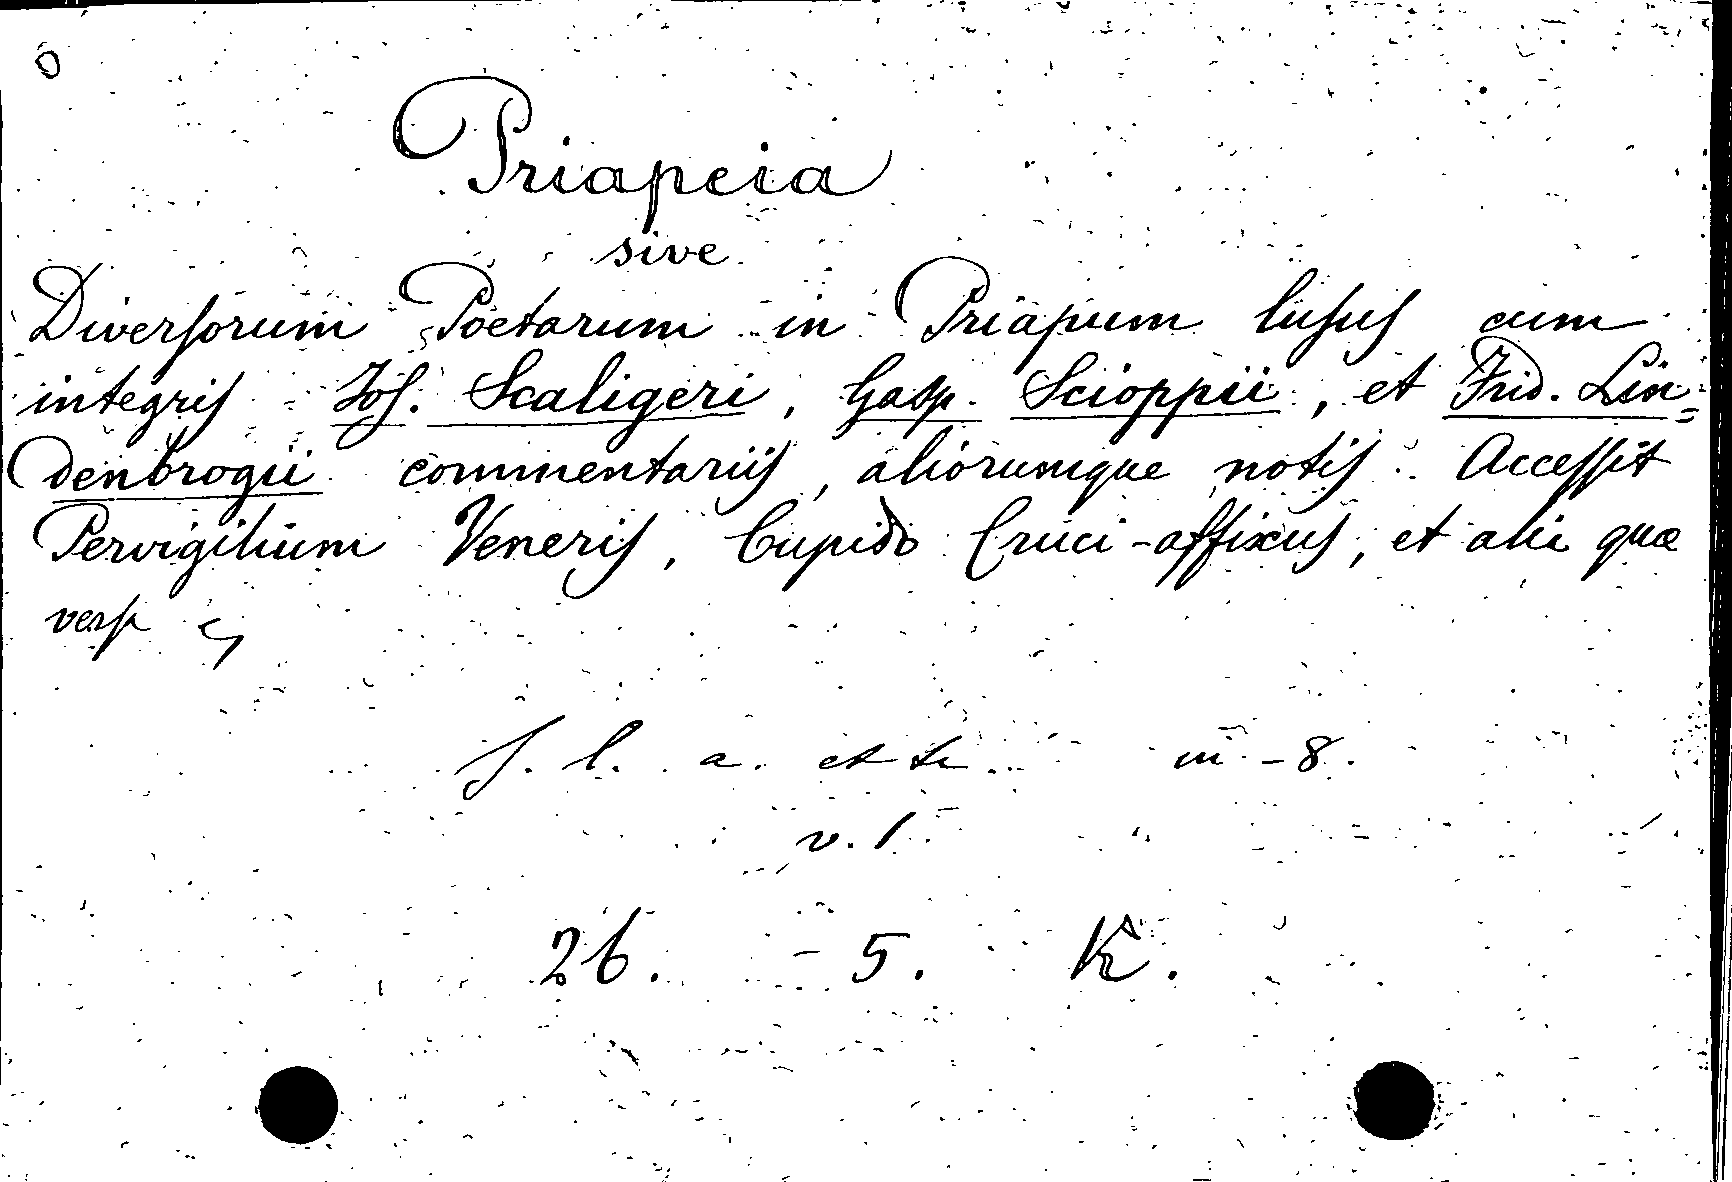 O
Priapeia
sive
Diversorum Poetarum in Priapum lusus cum
integris Jos. Scaligeri, Gasp. Scioppii, et Frid. Lin=
denbrogii commentariis, aliorumque notis. Accessit
Pervigilium Veneris, Cupido Cruci-affixus, et alia quæ
s. l. a. et t. in-8.
v. 1
26. - 5. K.